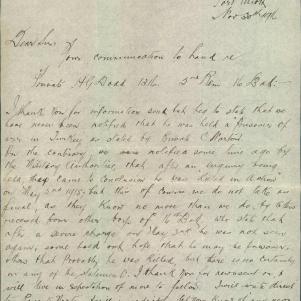 Port
Nov 30th 1916
Dear Sir
Your communication to hand re
Private H G Dodd 13th 3rd Rein 16 Batt:-
I thank you for information send but beg to state that we
have never been notified that he was held a Prisoner of
war in Turkey as stated by
On the contrary we were notified some time ago by
the Military Authorities, that after an enquiry being
held, they came to conclusion he was killed in action
on May 2nd 1915, but this of course we do not take as
final, as they know no more than we do, by letters
received from other boys of 16th Batt who state that
after a severe charge on May 2nd he was not seen
again, some hold out hope that he may be prisoner,
others that Probably he was killed, but there is no certainty
in any of the I thank you for news sent on, &
will live in expectation of more to follow.